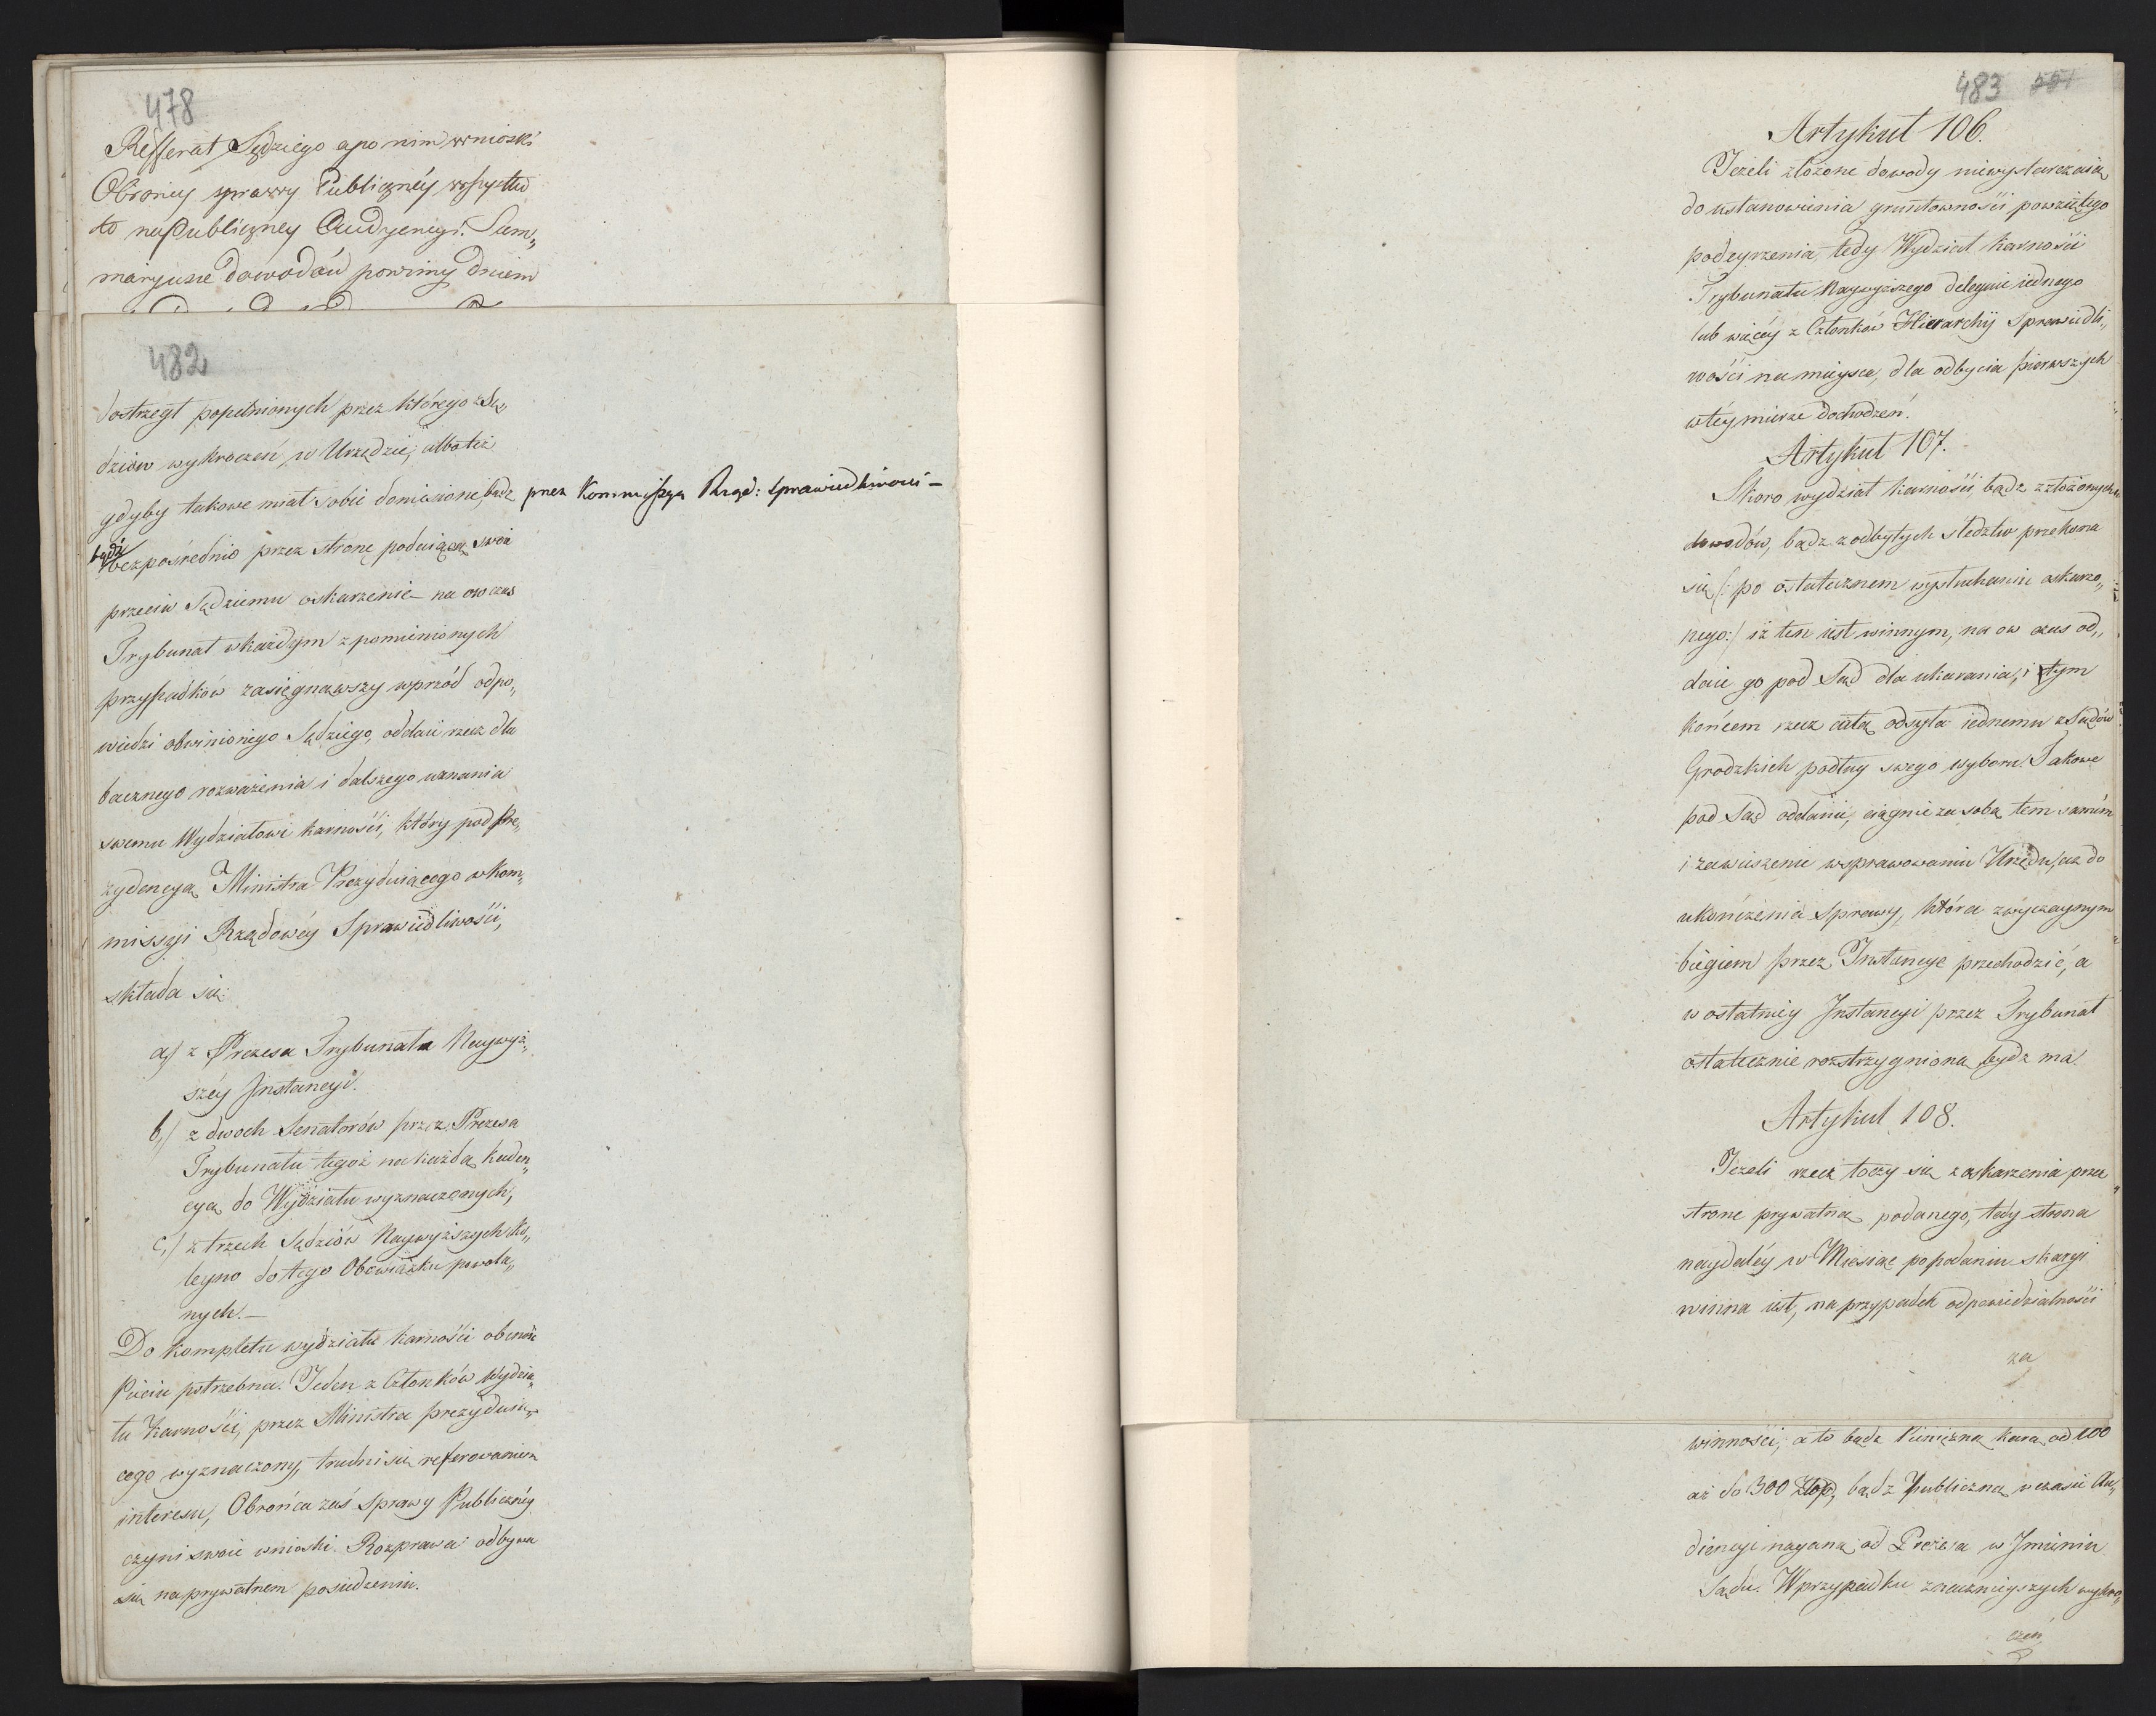 478
Refferat Sędziego a po nim wnioski
Obrońcy sprawy Publicznéy
to na Publiczney Audyencyi. Sum„
maryusz dowodów powinny dniem
482
dostrzegł popełnionych przez którego z Sę„
dziów wykroczeń w Urzędzie, albo też
gdyby takowe miał sobie doniesione, bądz przez Kommissyą Rząd: Sprawiedliwości –
bądź bezpośrednio przez stronę podaiącą swoie
przeciw Sędziemu oskarzenie – na ow czas
Trybunał w każdym z pomienionych
przypadków zasięgnąwszy wprzód odpo„
wiedzi obwinionego Sędziego, oddaie rzecz dla
bacznego rozważenia i dalszego uznania
swemu Wydziałowi karności, który pod Pre„
zydencyą Ministra Prezyduiącego w Kom„
missyi Rządowéy Sprawiedliwości,
składa się:
a,) z Prezesa Trybunału Naywyż„
széy Instancyi.
b,) z dwoch Senatorów przez Prezesa
Trybunału tegoż na każdą kaden„
cyą do Wydziału wyznaczonych,
c,) z trzech Sędziów Naywyższych ko„
leyno do tego Obowiązku powoła„
nych. –
Do kompletu wydziału karności obecność
Pięciu potrzebna. Jeden z Członków Wydzia„
łu Karności, przez Ministra prezyduią„
cego wyznaczony, trudni się referowaniem
interesu, Obrońca zaś Sprawy Publicznéy
czyni swoie wnioski. Rozprawa odbywa
się na prywatnem posiedzeniu.
483 551
Artykuł 106.
Jeżeli złożone dowody niewystarczaią
do ustanowienia gruntowności powziętego
podeyrzenia, tedy Wydział karności
Trybunału Naywyższego deleguie iednego
lub więcéy z Członków Hierarchij Sprawiedli„
wości na mieysce, dla odbycia pierwszych
w téy mierze dochodzeń.
Artykuł 107.
Skoro wydział karności, bądz z złożonych
dowodów, bądz z odbytych śledztw przekona
się (: po ostatecznem wysłuchaniu oskarżo„
nego:) iż ten iest winnym, na ow czas od„
daie go pod Sąd dla ukarania, i tym
końcem rzecz całą odsyła iednemu z Sądów
Grodzkich podług swego wyboru. Takowe
pod Sąd oddanie, ciągnie za sobą tem samém
i zawieszenie w sprawowaniu Urzędu, aż do
ukończenia Sprawy, która zwyczaynym
biegiem przez Instancye przechodzić, a
w ostatniéy Instancyi przez Trybunał
ostatecznie rozstrzygnioną bydz ma.
Artykuł 108.
Jeżeli rzecz toczy się z oskarzenia przez
stronę prywatną podanego, tedy strona
naydaléy w Miesiąc po podaniu skargi
winna iest, na przypadek odpowiedzialności
za
winności, a to bądz Pieniężną karą od 100
aż do 300 Złop, bądz Publiczną w czasie Au„
diencyi naganą od Prezesa w Imieniu
Sądu. W przypadku znacznieyszych wykro„
czeń